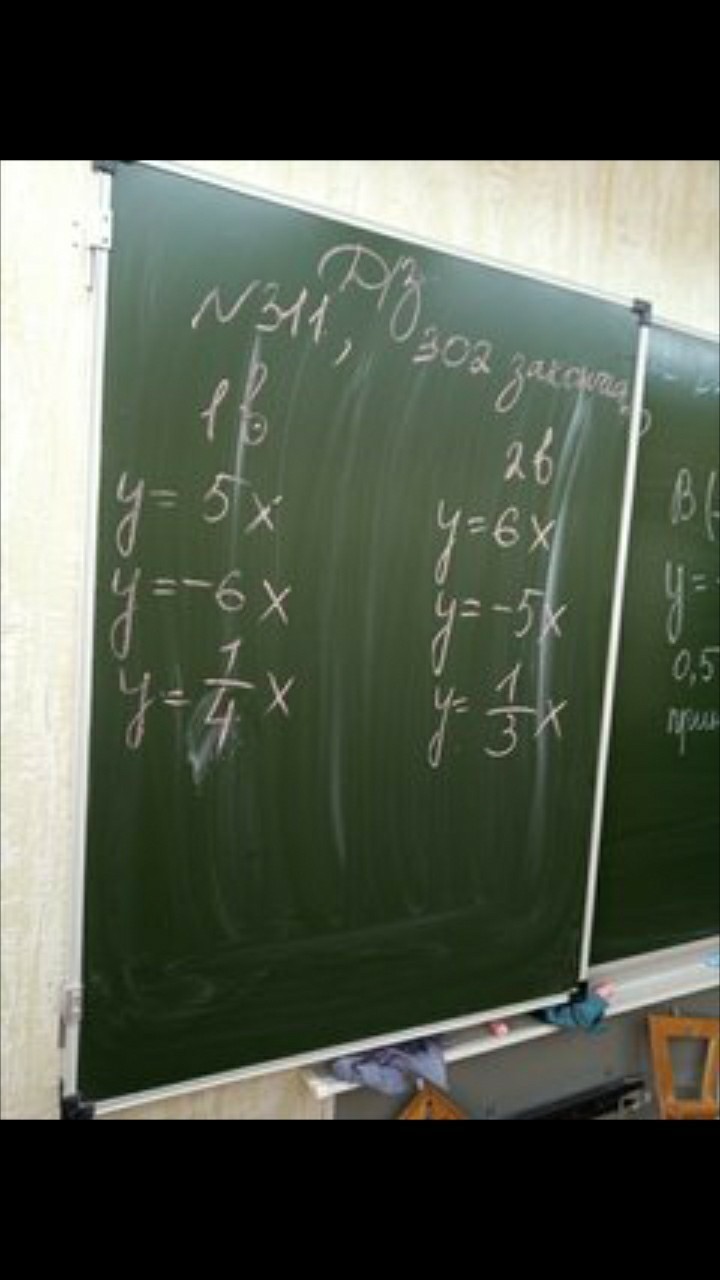 Д/З
№311, 302 закончить
1 в.
y = 5x
y = -6x
y = 1/4 x
2 в
y = 6x
y = -5x
y = 1/3 x
В (
y =
0,5